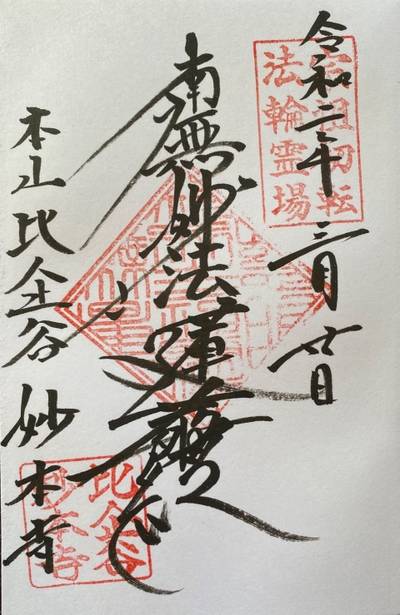 令和二年三月廿日
宗祖初転
法輪霊場
南無妙法蓮華経
本山比企谷妙本寺
比企谷
妙本寺